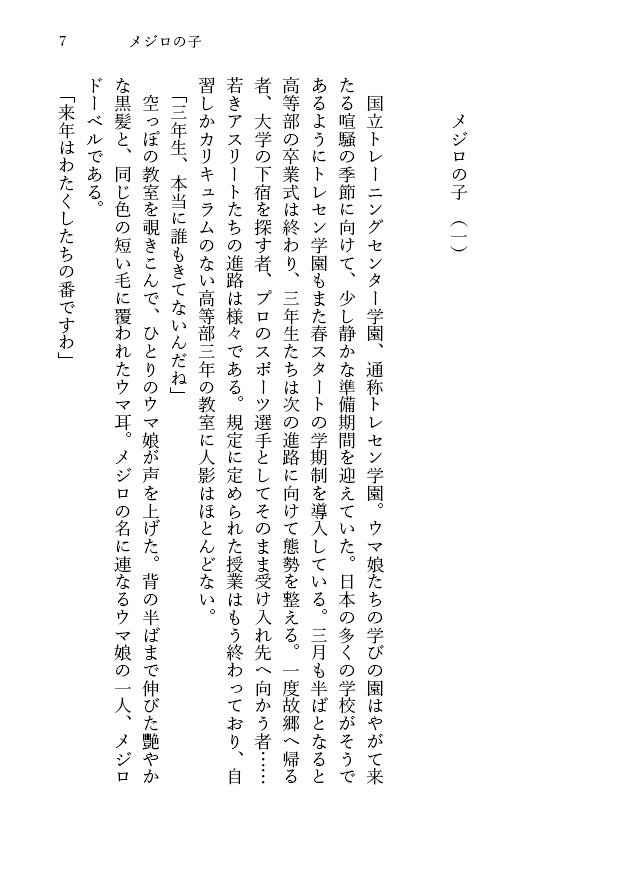 7　メジロの子
メジロの子　（一）
　国立トレーニングセンター学園、通称トレセン学園。ウマ娘たちの学びの園はやがて来
たる喧騒の季節に向けて、少し静かな準備期間を迎えていた。日本の多くの学校がそうで
あるようにトレセン学園もまた春スタートの学期制を導入している。三月も半ばとなると
高等部の卒業式は終わり、三年生たちは次の進路に向けて態勢を整える。一度故郷へ帰る
者、大学の下宿を探す者、プロのスポーツ選手としてそのまま受け入れ先へ向かう者……
若きアスリートたちの進路は様々である。規定に定められた授業はもう終わっており、自
習しかカリキュラムのない高等部三年の教室に人影はほとんどない。
「三年生、本当に誰もきてないんだね」
　空っぽの教室を覗きこんで、ひとりのウマ娘が声を上げた。背の半ばまで伸びた艶やか
な黒髪と、同じ色の短い毛に覆われたウマ耳。メジロの名に連なるウマ娘の一人、メジロ
ドーベルである。
「来年はわたくしたちの番ですわ」